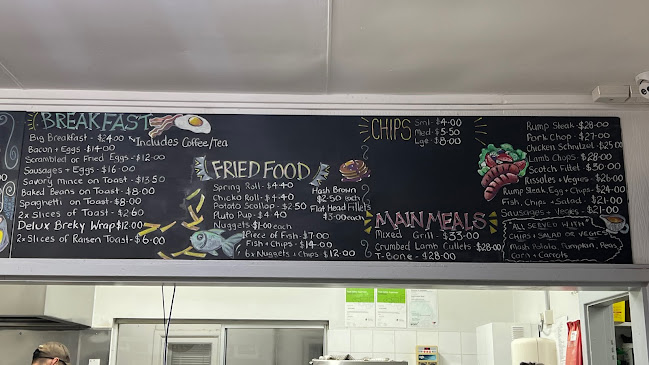 BREAKFAST
Big Breakfast - $24.00 *Includes Coffee/Tea
Bacon + Eggs - $14.00
Scrambled or Fried Eggs - $12.00
Sausages + Eggs - $16.00
Savory mince on Toast - $13.50
Baked Beans on Toast - $8.00
Spaghetti on Toast - $8.00
2x Slices of Toast - $2.60
Delux Breky Wrap $12.00
2x Slices of Raisen Toast - $6.00
FRIED FOOD
Spring Roll - $4.40
Chicko Roll - $4.40
Potato Scallop - $2.50
Pluto Pup - $4.40
Nuggets $1.00 each
Piece of Fish - $7.00
Fish + Chips - $14.00
6x Nuggets + Chips - $12.00
Hash Brown
$2.50 each
Flat Head Fillets
$3.00 each
CHIPS
Sml - $4.00
Med - $5.50
Lge - $8.00
MAIN MEALS
Mixed Grill - $33.00
Crumbed Lamb Cutlets - $28.00
T-Bone - $28.00
Rump Steak - $28.00
Pork Chop - $27.00
Chicken Schnitzel - $25.00
Lamb Chops - $28.00
Scotch Fillet - $30.00
Rissoles + Vegies - $26.00
Rump Steak, Egg + Chips - $24.00
Fish, Chips + Salad - $21.00
Sausages + Veges - $21.00
"ALL SERVED WITH"
CHIPS + SALAD OR VEGIES
Mash Potato, Pumpkin, Peas,
Corn + Carrots